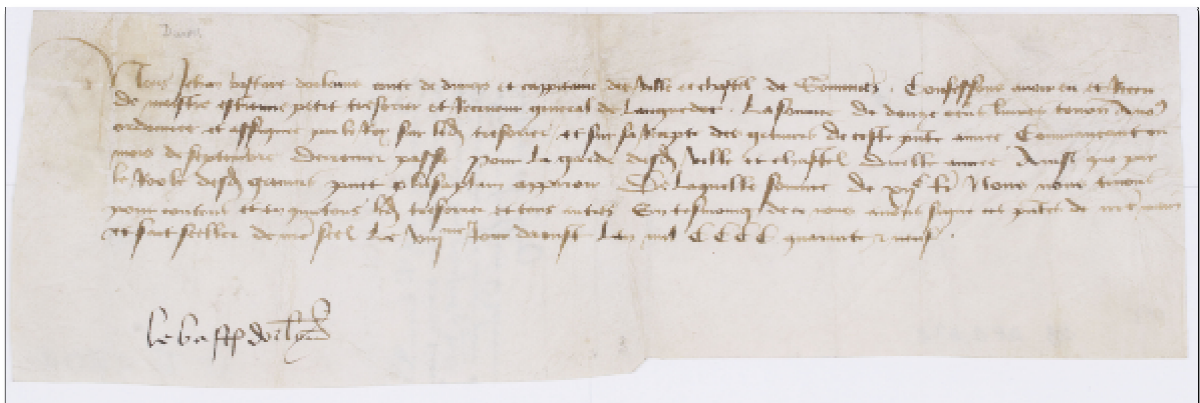 Dunois
Nous Jehan bastart dorleans conte de dunoys et cappitaine des ville et chastel de Sommieres . Confessons avoir eu et Receu
de maistre estienne petit tresorier et Receveur general de Languedoc . La somme de douze cens livres tournois A nous
ordonnee et assignee par le Roy sur led tresorier et sur sa Recepte des greniers de ceste pnte annee Commencant ou
mois de septembre derrenier passe pour la garde desd ville et chastel dicelle annee Ainsi que par
le Role desd greniers peut plus aplain apparoir De laquelle somme de xijc lt Nous nous tenons
pour content et en quictons led tresorier et tous autres En tesmoing de ce nous avons signe ces pntes de nre main
et fait seeller de nre seel Le viijme Jour daoust Lan mil CCCC quarante et neuf .
le bast dorleans